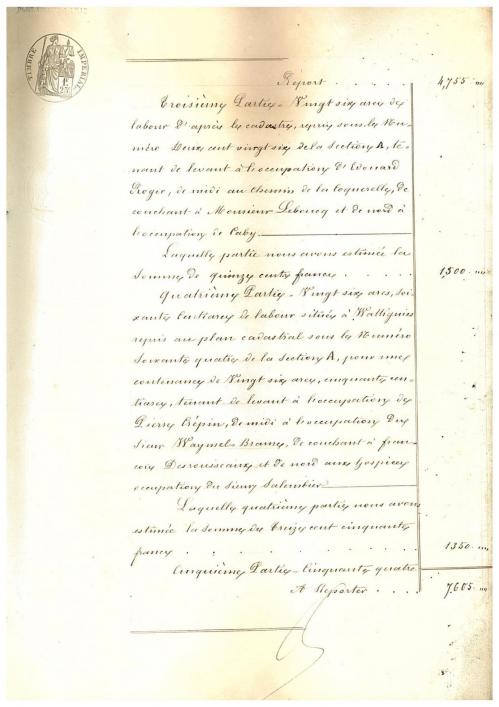 TIMBRE IMPERIAL
Report . . . . . 4,755 "
Troisième Partie - Vingt six ares de
labour d'après le cadastre, repris sous le Nu-
méro Deux cent vingt six de la Section A, te-
nant de levant à l'occupation d'Edouard
Roger, de midi au chemin de la loquerelle, de
couchant à Monsieur Leboucq et de nord à
l'occupation de Caby.
Laquelle partie nous avons estimée la
somme de quinze cents francs . . . . . 1,500 "
Quatrième Partie - Vingt six ares, soi-
xante centiares de labour situées à Wattignies
repris au plan cadastral sous le Numéro
Soixante quatre de la Section A, pour une
contenance de Vingt six ares, cinquante cen-
tiares, tenant de levant à l'occupation de
Pierre Crépin, de midi à l'occupation du
sieur Waymel-Brame, de couchant à fran-
cois Desrousseaux et de nord aux hospices
occupation du sieur Salembier
Laquelle quatrième partie nous avons
estimée la somme de Treize cent cinquante
francs . . . . . . . 1350 "
Cinquième Partie - Cinquante quatre
A Reporter . . . . 7,605 "